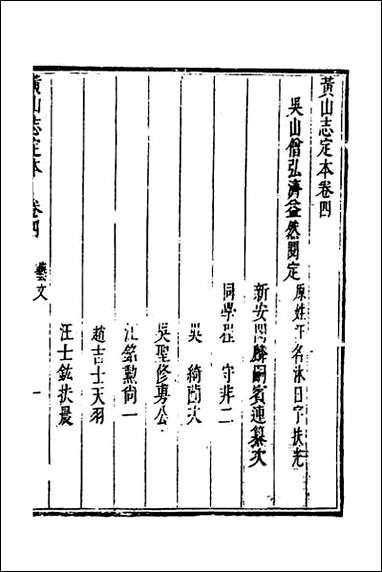 黃山志定本卷四
吳山僧弘濟益然閱定 原姓王名泳日字扶光
新安閔麟嗣賓連纂次
同學程守非二
吳綺薗次
吳聖修専公
江銘勲尚一
趙吉士天羽
汪士鋐扶晨
黃山志定本 卷四 藝文 一